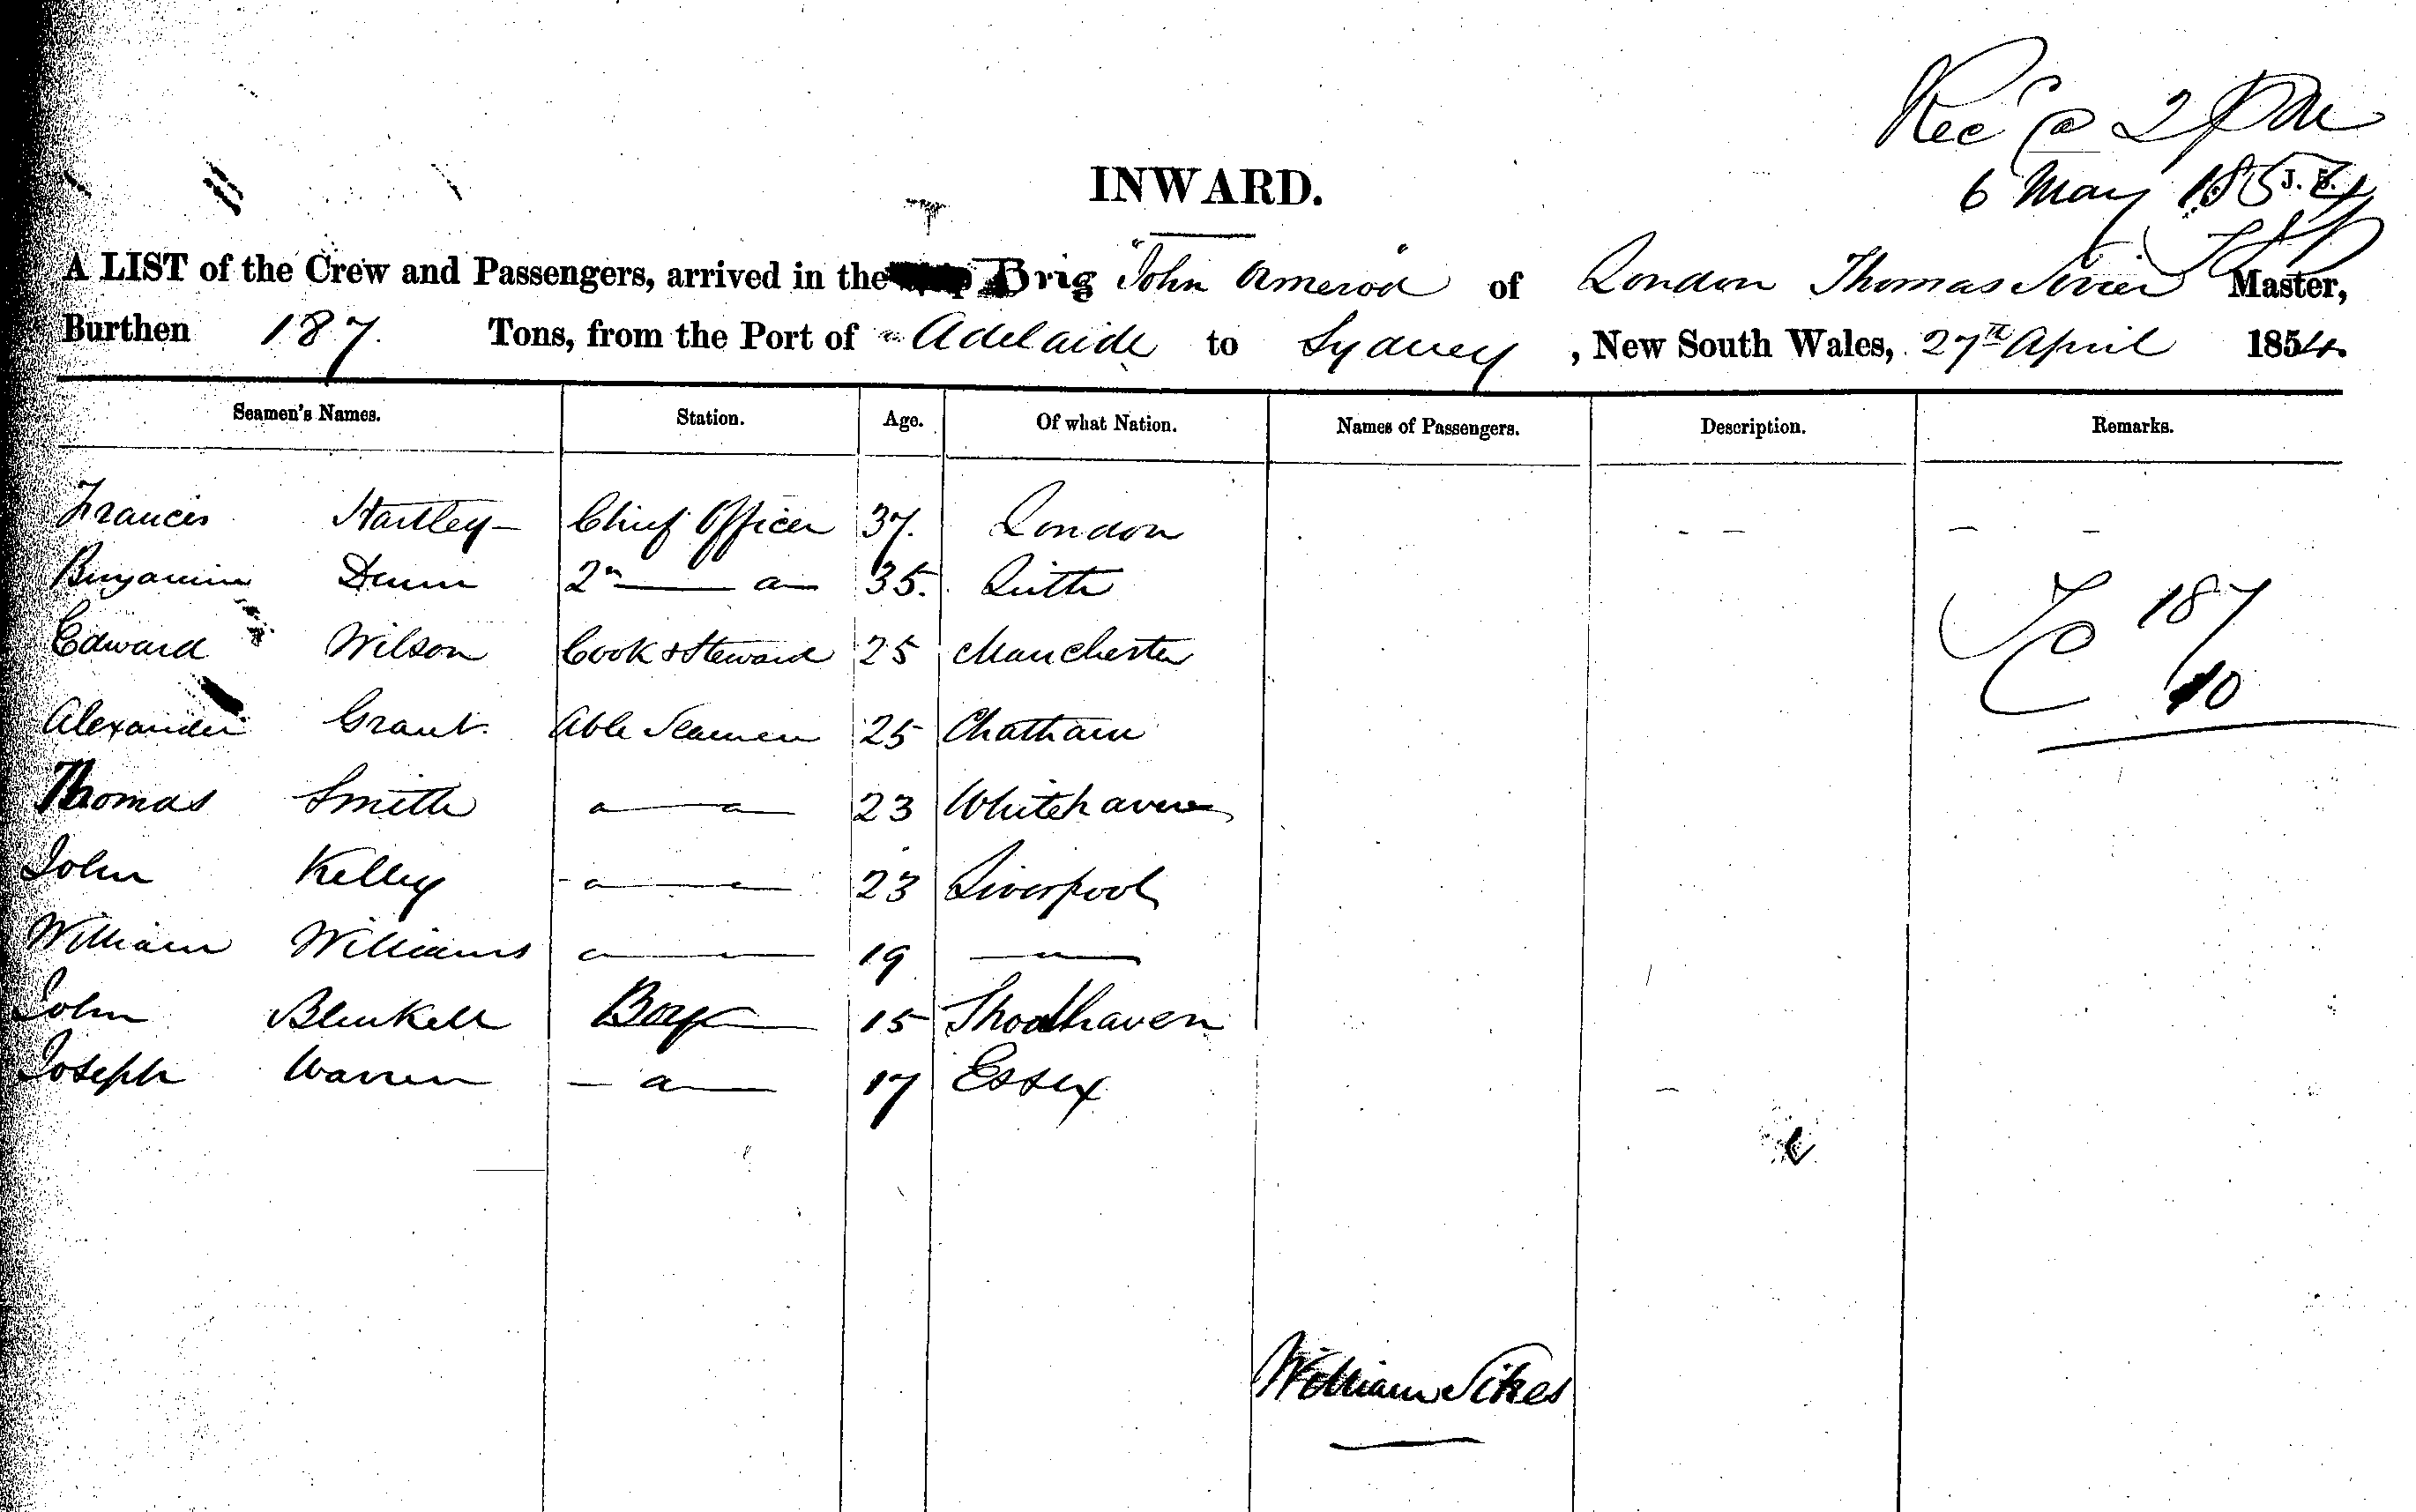 Rec^d @ 2 PM
6 May 1854
INWARD.
A LIST of the Crew and Passengers, arrived in the Brig "John Omerod" of London Thomas Master,
Burthen 187 Tons, from the Port of Adelaide to Sydney, New South Wales, 27th April 1854.
Seamen's Names. Station. Age. Of what Nation. Names of Passengers. Description. Remarks.
Francis Hartley Chief Officer 37. London
Benjamin Dunn 2n — a — 35. Leith
Edward Wilson Cook & Steward 25 Manchester
Alexander Grant. Able Seamen 25 Chatham
Thomas Smith a — a — 23 Whitehaven
John Kelley a — a — 23 Liverpool
William Williams a — a — 19 — a —
John Boy 15 Shoalhaven
Joseph Warren — a — 17 Essex
T 187
C 10
William Sikes